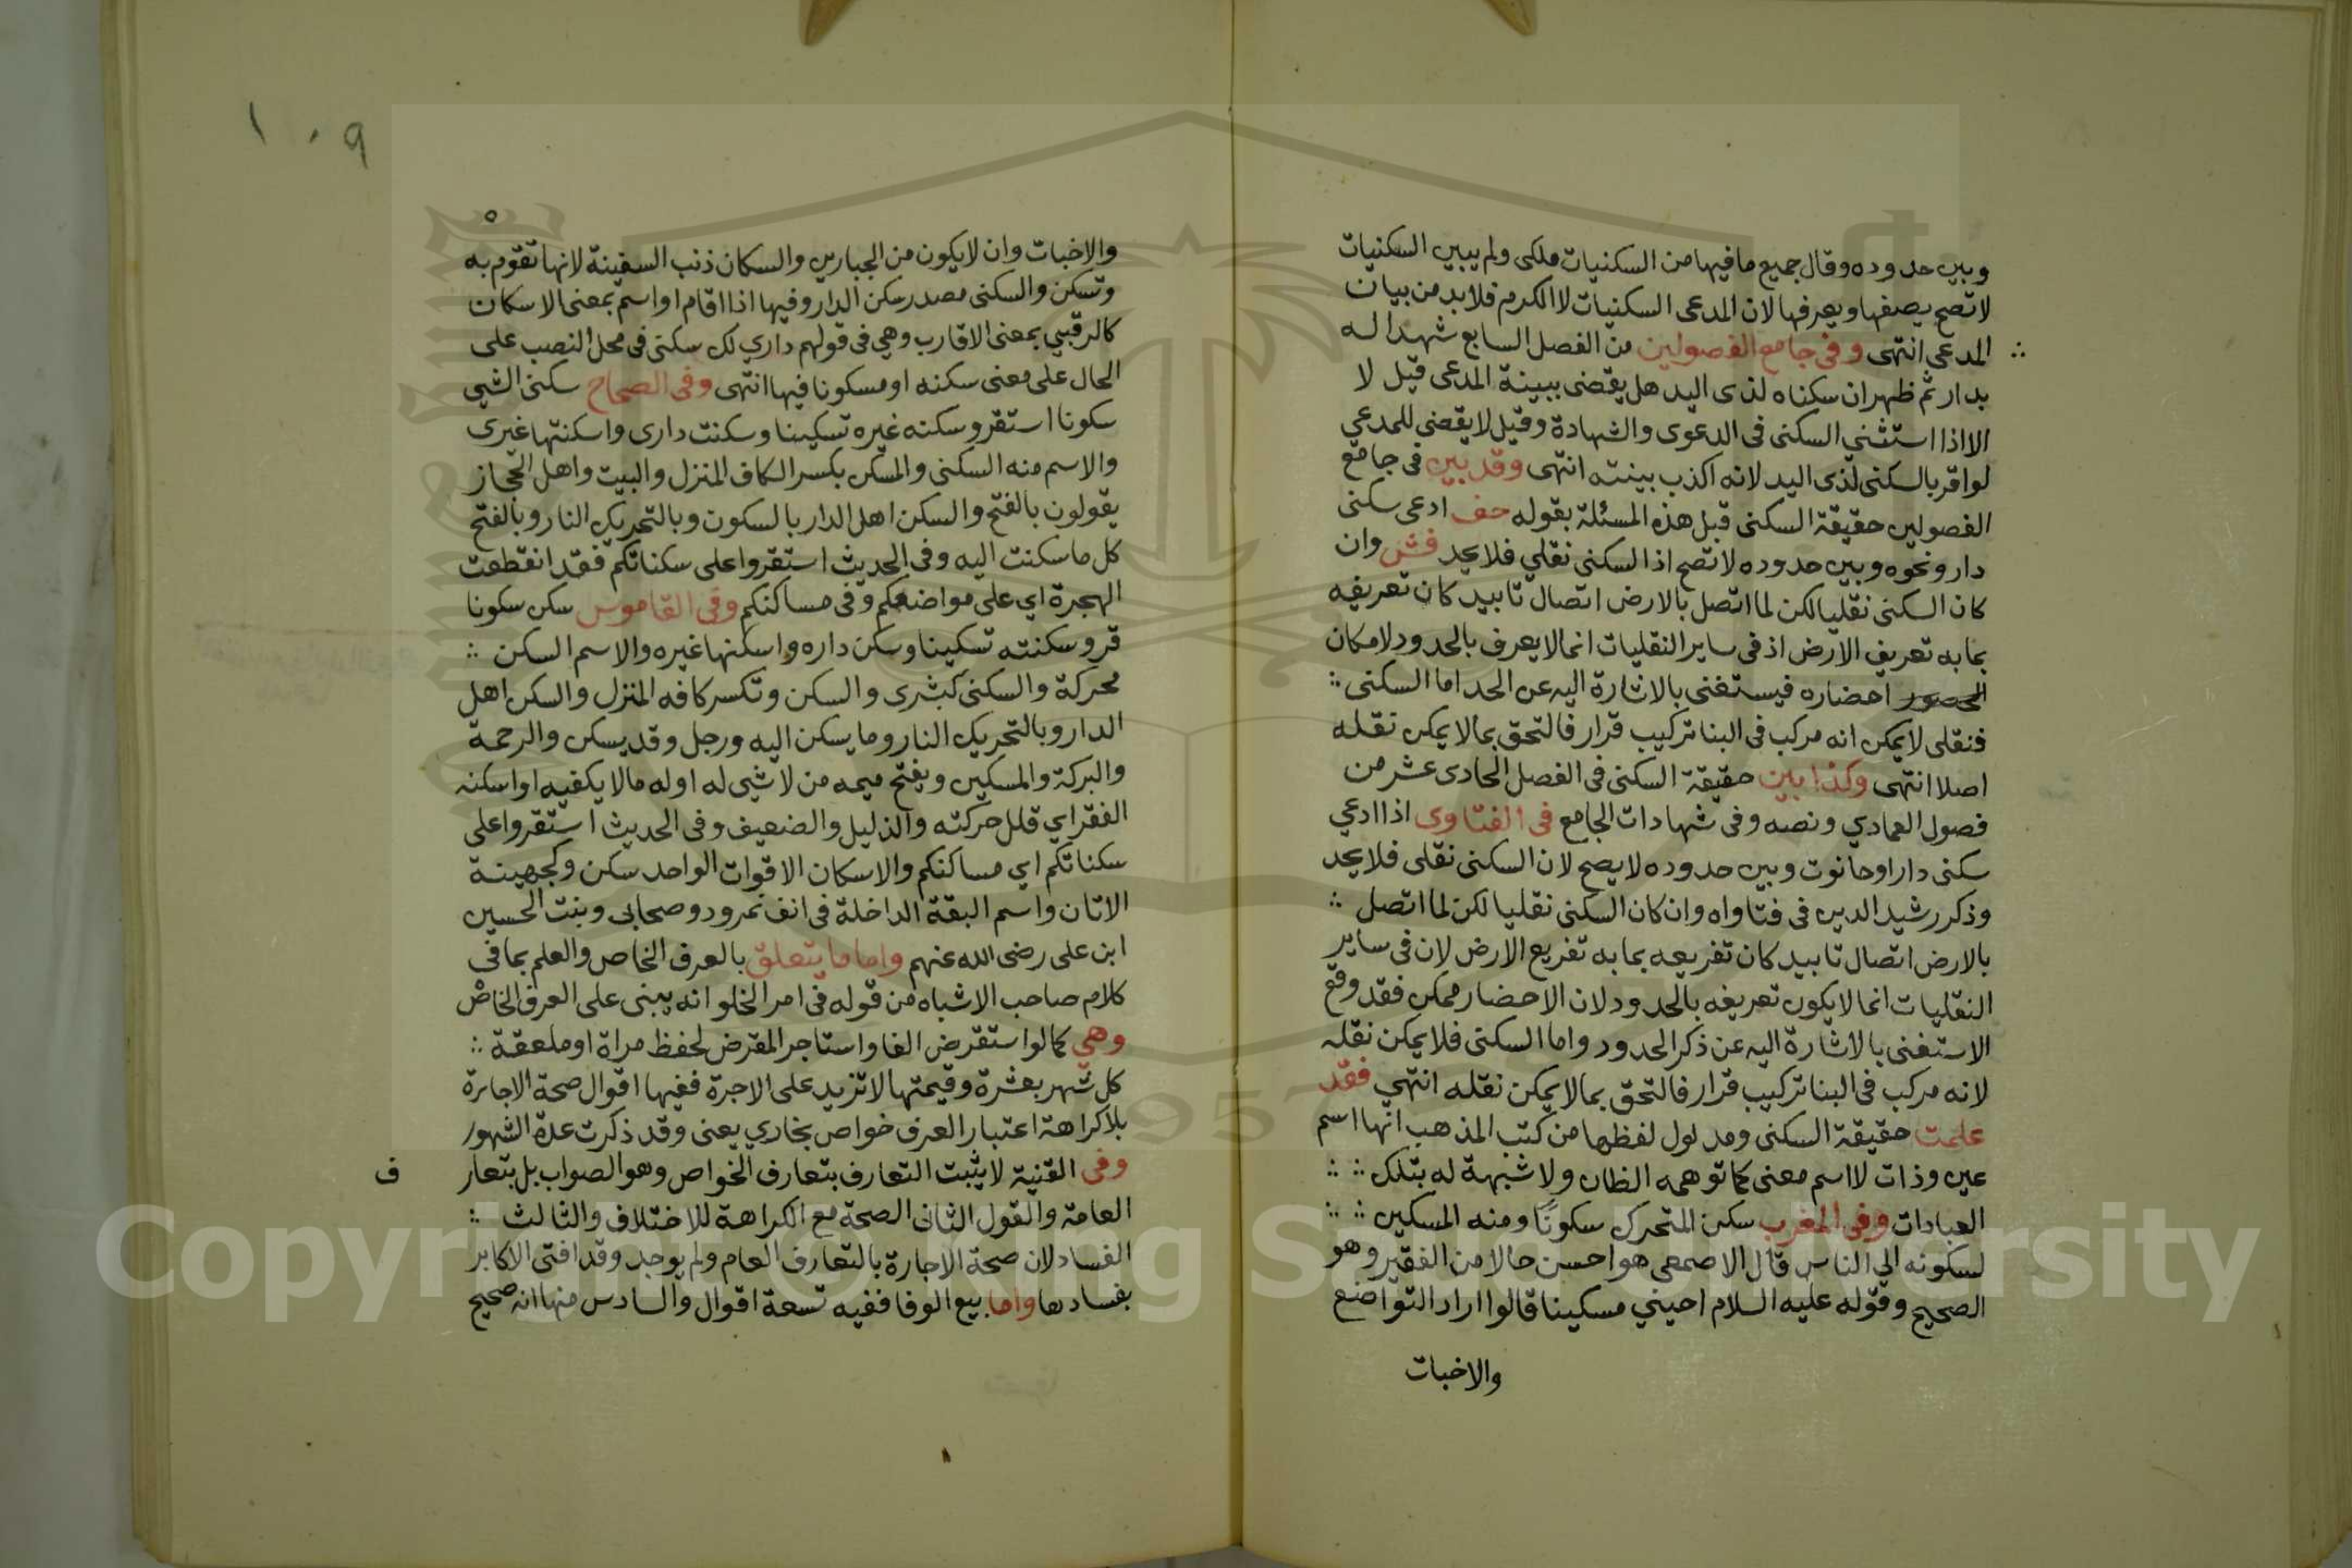 وبين حدوده وقال جميع ما فيها من السكنيات ملكى ولم يبين السكنيات
لا تصح يصفها ويعرفها لان المدعى السكنيات لا الكرم فلا بد من بيان
المدعي انتهى وفى جامع الفصولين من الفصل السابع شهدا له
بدار ثم ظهر ان سكناه لذى اليد هل يقضى ببينة المدعى قيل لا
الا اذا استثنى السكنى فى الدعوى والشهادة وقيل لا يقضي للمدعي
لو اقر بالسكنى لذى اليد لانه اكذب بينته انتهى وقد بين فى جامع
الفصولين حقيقة السكنى قبل هذه المسئلة بقوله خف ادعى سكنى
دار ونحوه وبين حدوده لا تصح اذ السكنى نقلي فلا يحد فش وان
كان السكنى نقليا لكن لما اتصل بالارض اتصال تابيد كان تعريفه
بما به تعريف الارض اذ فى ساير النقليات انما لا يعرف بالحدود لامكان
احضاره فيستغنى بالاشارة اليه عن الحد اما السكنى
فنقلى لا يمكن انه مركب فى البنا تركيب قرار فالتحق بما لا يمكن نقله
اصلا انتهى وكذا بين حقيقة السكنى فى الفصل الحادى عشر من
فصول العمادي ونصه وفى شهادات الجامع فى الفتاوى اذا ادعي
سكنى دار او حانوت وبين حدوده لا يصح لان السكنى نقلى فلا يحد
وذكر رشيد الدين فى فتاواه وان كان السكنى نقليا لكن لما اتصل
بالارض اتصال تابيد كان تفريعه بما به تفريع الارض لان فى ساير
النقليات انما لا يكون تعريفه بالحدود لان الاحضار ممكن فقد وقع
الاستغنى بالاشارة اليه عن ذكر الحدود واما السكنى فلا يمكن نقله
لانه مركب فى البنا تركيب قرار فالتحق بما لا يمكن نقله انتهي فقد
علمت حقيقة السكنى ومدلول لفظها من كتب المذهب انها اسم
عين وذات لا اسم معنى كما توهمه الظان ولا شبهة له بتلك
العبادات وفى المغرب سكن المتحرك سكونًا ومنه المسكين
لسكونه الى الناس قال الاصمعى هو احسن حالا من الفقير وهو
الصحيح وقوله عليه السلام احيني مسكينا قالوا اراد التواضع
والاخبات
١٠٩
٥
والاخبات وان لا يكون من الجبارين والسكان ذنب السفينة لانها تقوم به
وتسكن والسكنى مصدر سكن الدار وفيها اذا اقام او اسم بمعنى الاسكان
كالرقبي بمعنى الاقارب وهي فى قولهم داري لك سكنى فى محل النصب على
الحال على معنى سكنه او مسكونا فيها انتهى وفى الصحاح سكن الشي
سكونا استقر وسكنه غيره تسكينا وسكنت دارى واسكنتها غيرى
والاسم منه السكنى والمسكن بكسر الكاف المنزل والبيت واهل الحجاز
يقولون بالفتح والسكن اهل الدار بالسكون وبالتحريك النار وبالفتح
كل ما سكنت اليه وفى الحديث استقروا على سكناتكم فقد انقطعت
الهجرة اي على مواضعكم وفى مساكنكم وفى القاموس سكن سكونا
قر وسكنته تسكينا وسكن داره واسكنها غيره والاسم السكن
محركة والسكنى كبشرى والسكن وتكسر كافه المنزل والسكن اهل
الدار وبالتحريك النار وما يسكن اليه ورجل وقد يسكن والرحمة
والبركة والمسكين ويفتح ميمه من لا شيى له اوله ما لا يكفيه او اسكنه
الفقر اي قلل حركته والذليل والضعيف وفى الحديث استقروا على
سكناتكم اي مساكنكم والاسكان الاقوات الواحد سكن وكجهينة
الاتان واسم البقة الداخلة فى انف نمرود وصحابى وبنت الحسين
ابن على رضى الله عنهم واما ما يتعلق بالعرف الخاص والعلم بما فى
كلام صاحب الاشباه من قوله فى امر الخلو انه يبنى على العرف الخاص
وهي كما لو استقرض الفا واستاجر المقرض لحفظ مراة او ملعقة
كل شهر بعشرة وقيمتها لا تزيد على الاجرة ففيها اقوال صحة الاجارة
بلا كراهة اعتبار العرف خواص بخاري يعنى وقد ذكرت عدة الشهور
وفى القنية لا يثبت التعارف بتعارف الخواص وهو الصواب بل بتعار
ف
العامة والقول الثانى الصحة مع الكراهة للاختلاف والثالث
الفساد لان صحة الاجارة بالتعارف العام ولم يوجد وقد افتى الاكابر
بفسادها واما بيع الوفا ففيه تسعة اقوال والسادس منها انه صحيح
Copyright © King Saud University
1957